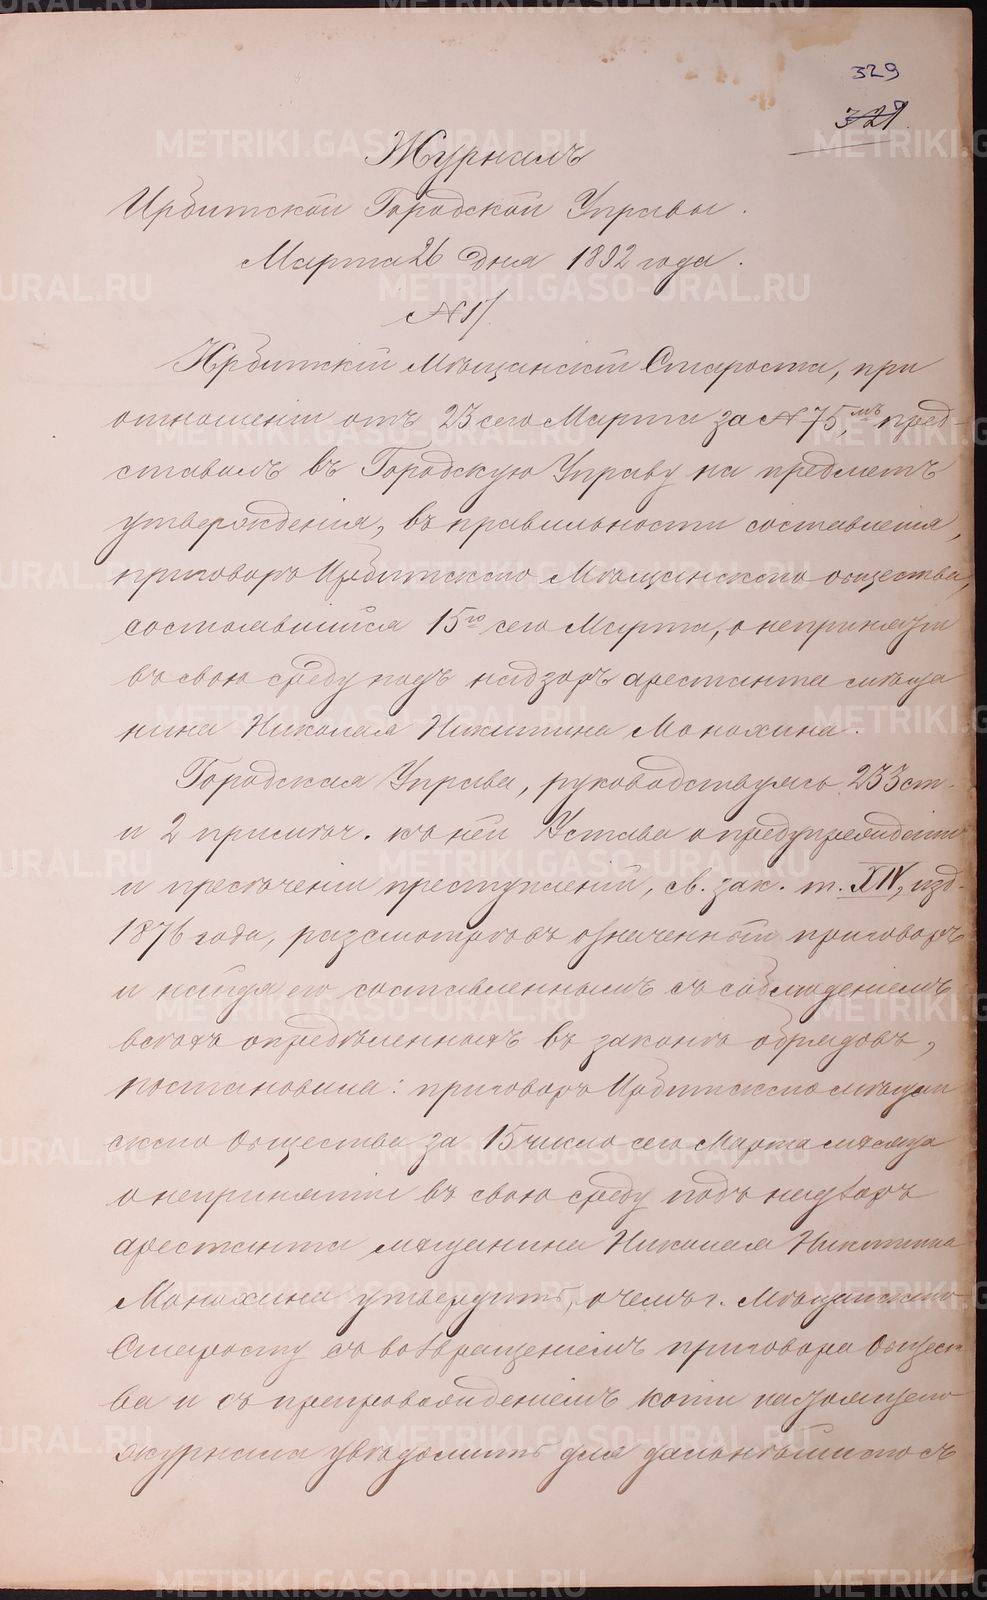 329
321
Журналъ
Ирбитской Городской Управы.
Марта 26 дня 1892 года.
Ирбитскій Мѣщанскій Староста, при
отношеніи отъ 23 сего Марта за № 75,мъ пред-
ставилъ въ Городскую Управу на предметъ
утвержденія, въ правильности составленія,
приговоръ Ирбитскаго Мѣщанскаго общества,
состоявшійся 15го сего Марта, о непринятіи
въ свою среду подъ надзоръ арестанта мѣща
нина Николая Никитина Монохина.
Городская Управа, руководствуясь 233 ст.
и 2 примѣч. къ ней Устава о предупрежденіи
и пресѣченіи преступленій, св. зак. т. XIV, изд.
1876 года, разсмотрѣвъ означенный приговоръ
и найдя его составленнымъ съ соблюденіемъ
всѣхъ опредѣленныхъ въ законѣ обрядовъ,
постановила: приговоръ Ирбитскаго мѣщан
скаго Общества за 15 число сего Марта мѣсяца
о непринятіи въ свою среду подъ надзоръ
арестанта мѣщанина Николая Никитина
Монохина утвердить, о чемъ г. Мѣщанскаго
Старосту съ возвращеніемъ приговора Общест
ва и съ препровожденіемъ копіи настоящаго
журнала увѣдомить для дальнѣйшаго съ
METRIKI.GASO-URAL.RU